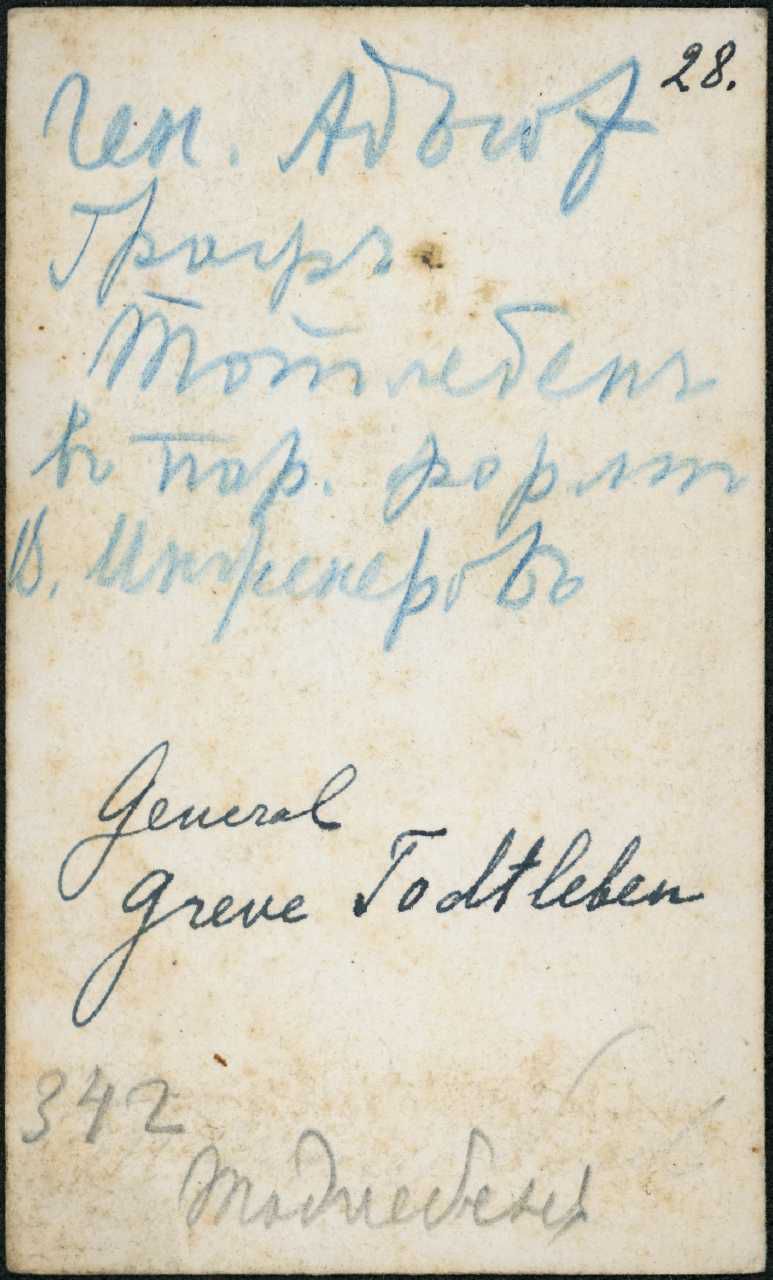 28.
Ген. Адъют
Графъ
Тотлебенъ
въ пар. форме
И. Инженеровъ
General
Greve Todtleben
342
Тодлебенъ